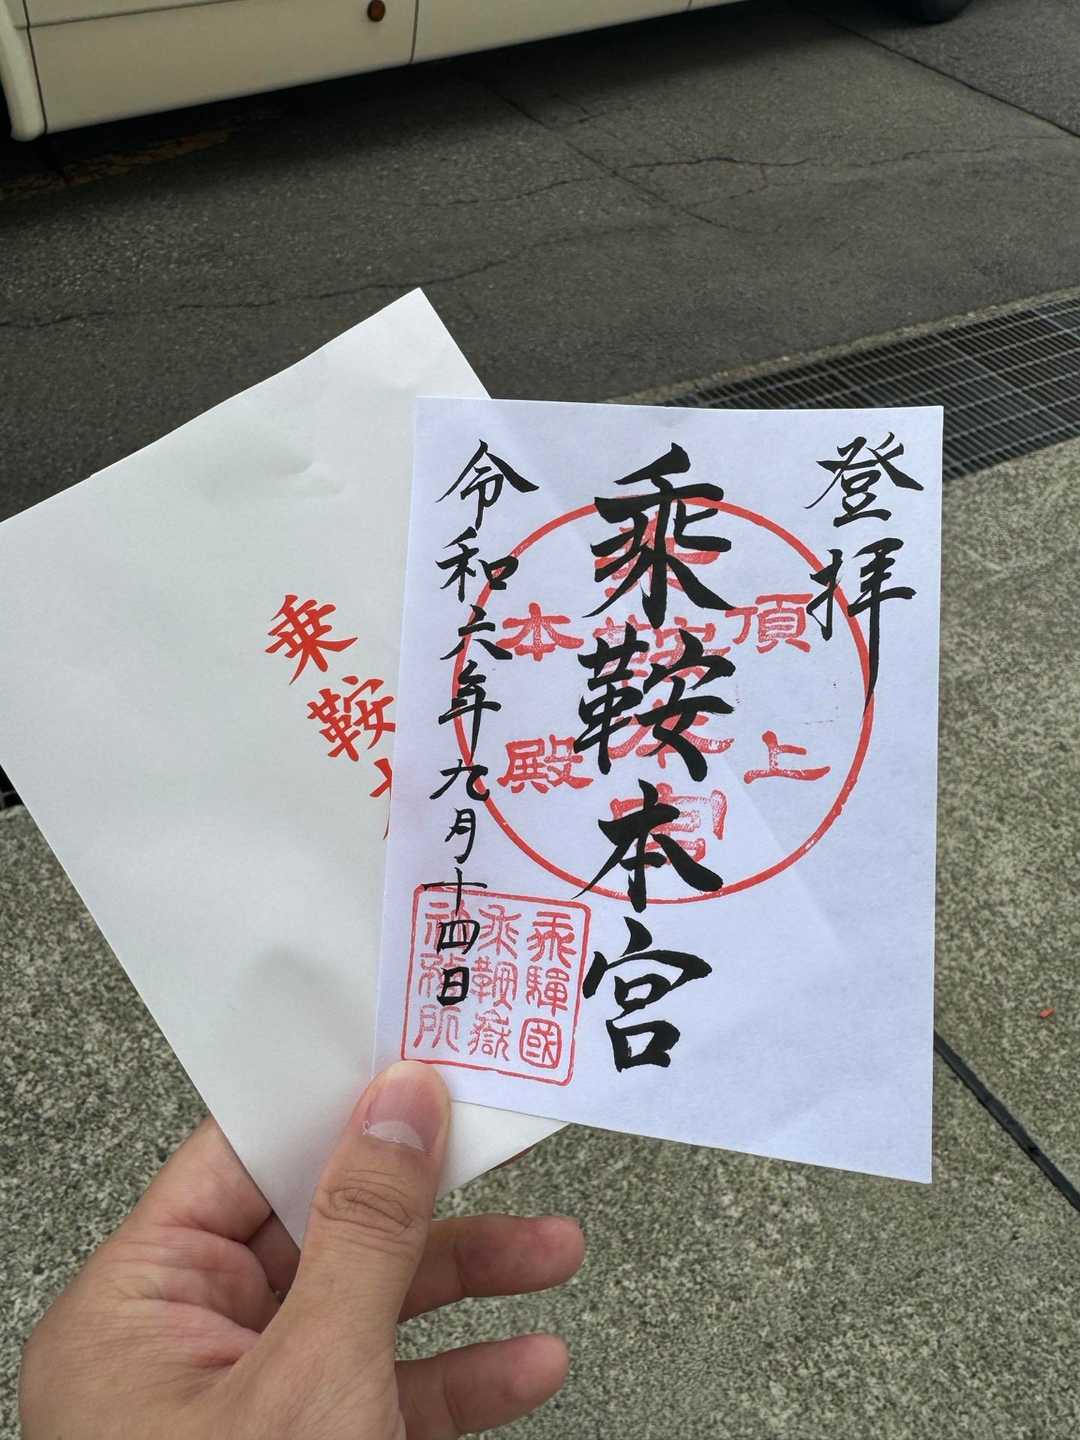 登拝
乗鞍本宮
令和六年九月十四日
頂上
乗鞍本宮
本殿
飛騨國
乗鞍嶽
社務所
乗鞍